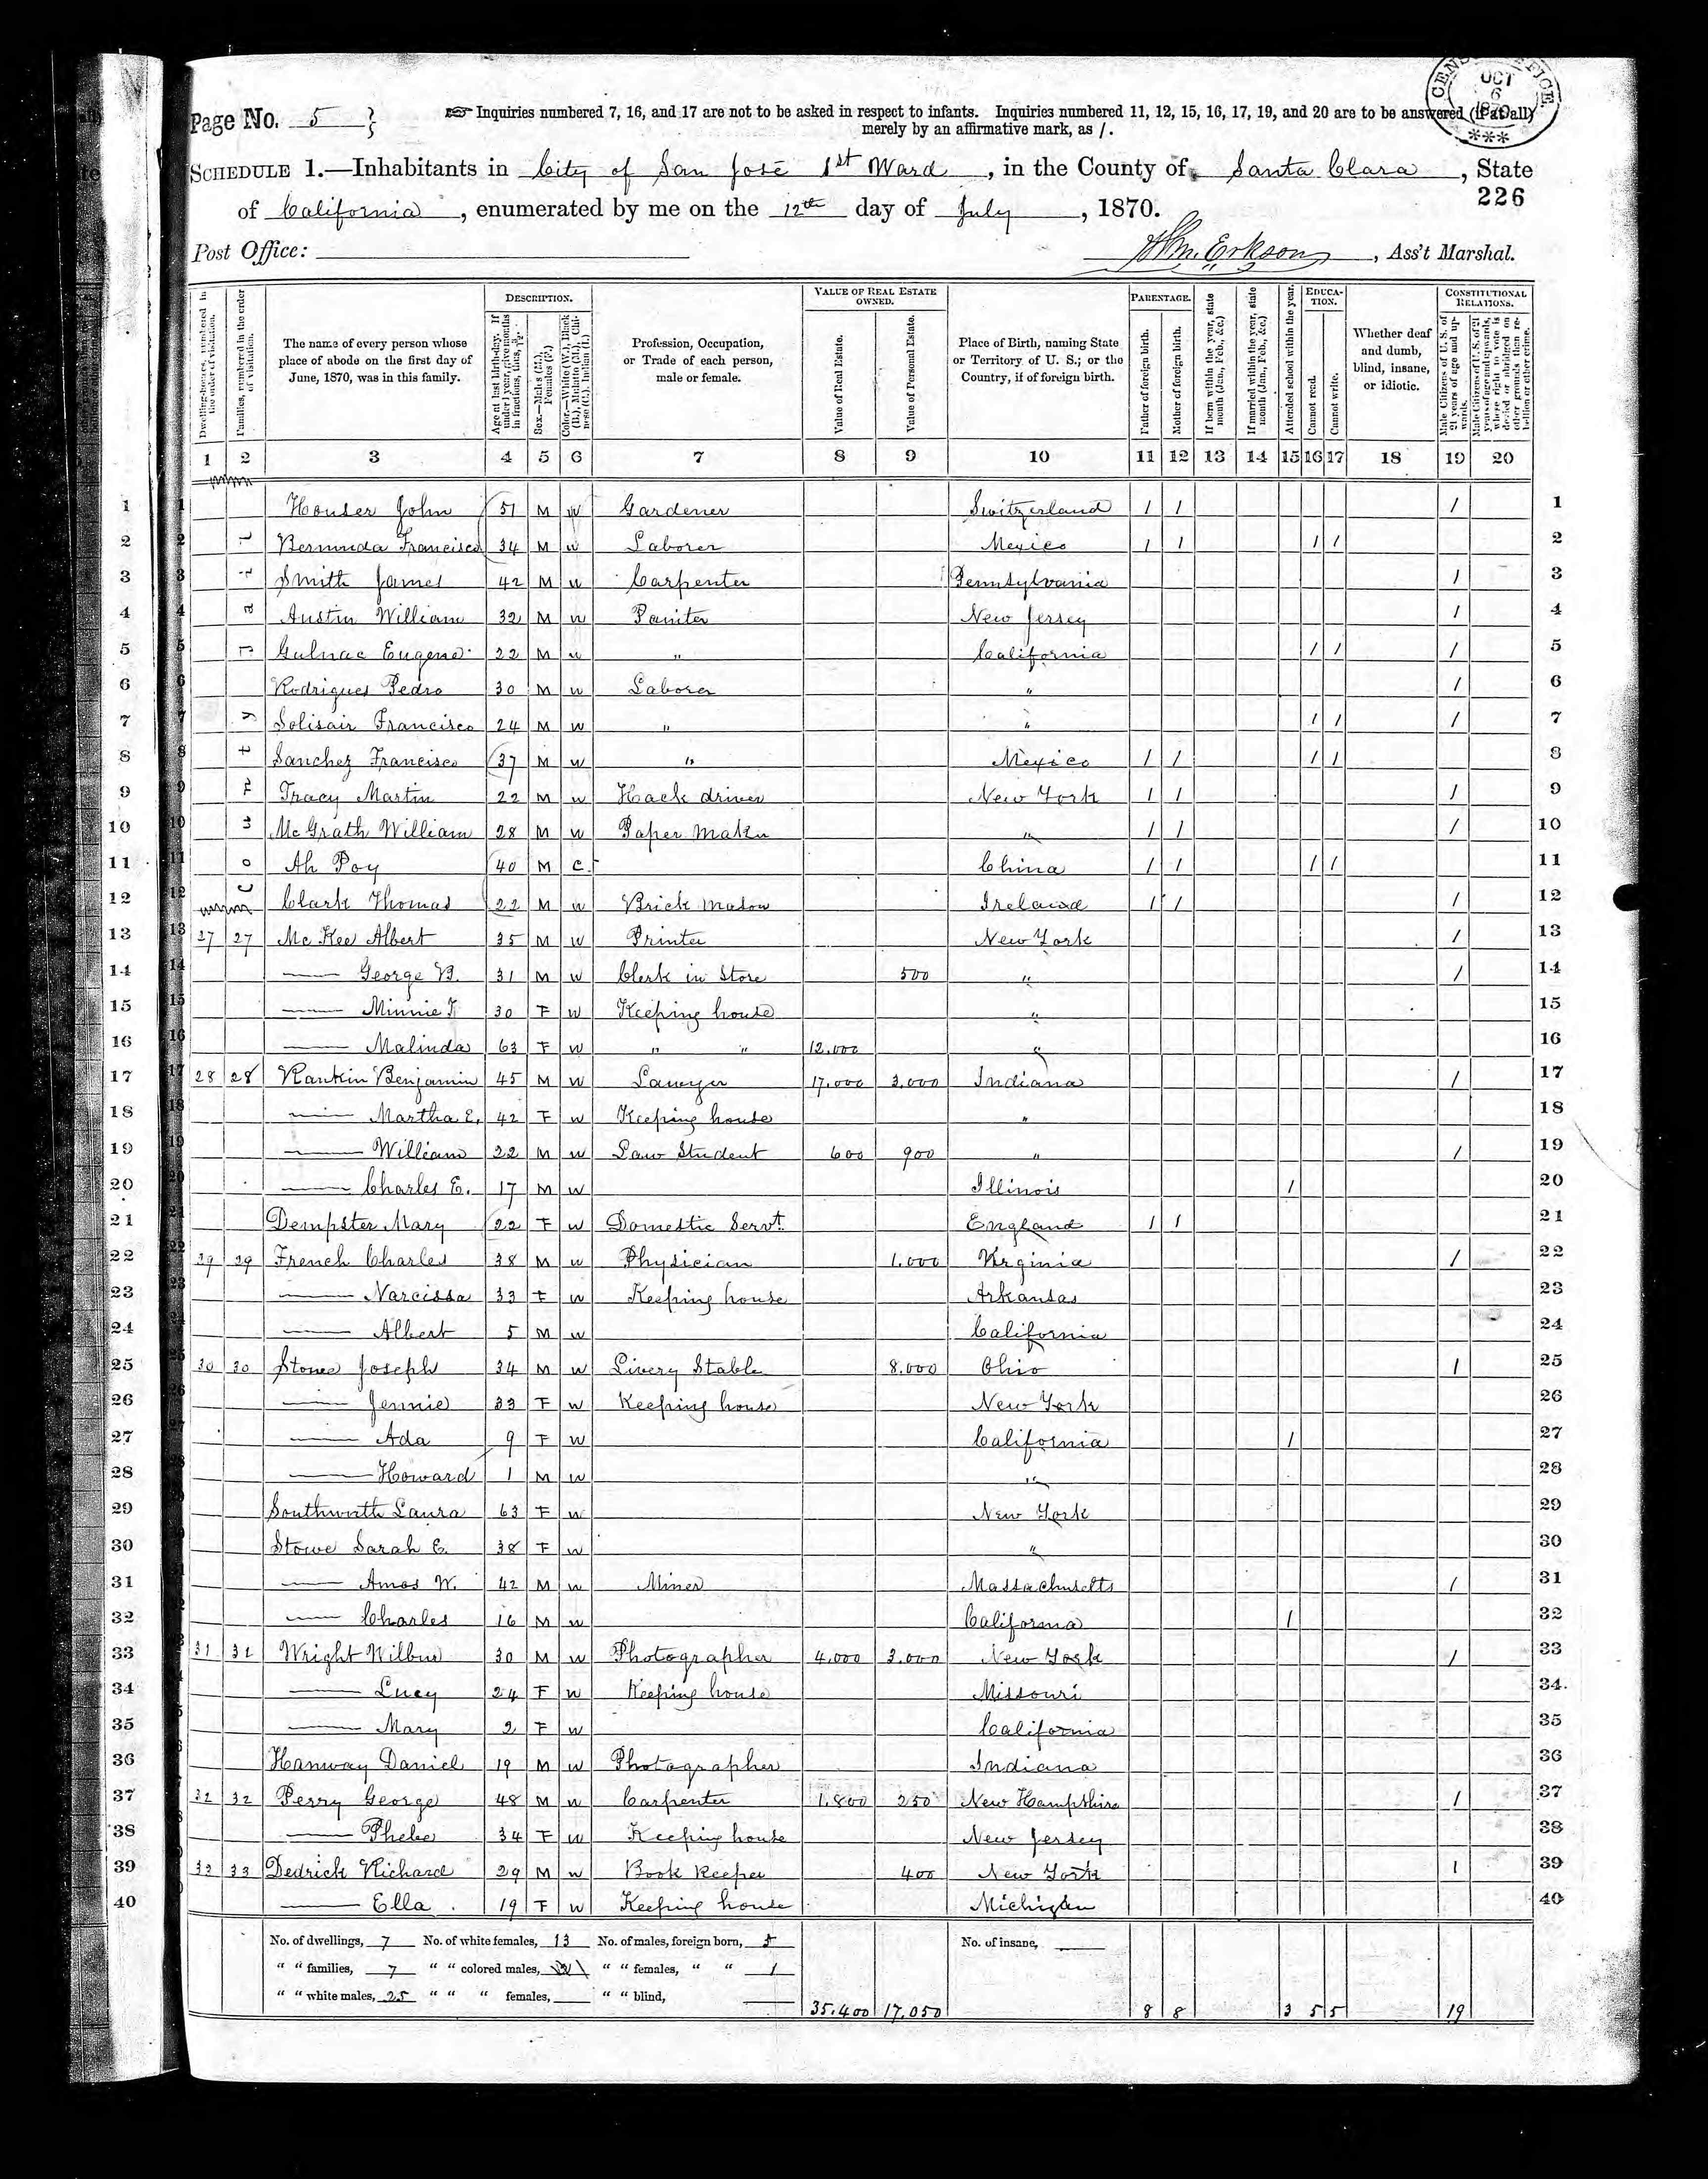 CENSUS OFFICE OCT 6 1870 ***
Page No. 5 }
☞ Inquiries numbered 7, 16, and 17 are not to be asked in respect to infants. Inquiries numbered 11, 12, 15, 16, 17, 19, and 20 are to be answered (if at all)
merely by an affirmative mark, as /.
SCHEDULE 1.—Inhabitants in City of San José 1st Ward, in the County of Santa Clara, State
226
of California, enumerated by me on the 12th day of July, 1870.
Post Office:
Wm. Erkson, Ass't Marshal.
Dwelling-houses, numbered in the order of visitation.
Families, numbered in the order of visitation.
The name of every person whose place of abode on the first day of June, 1870, was in this family.
DESCRIPTION.
Age at last birth-day. If under 1 year, give months in fractions, thus, 3/12.
Sex.—Males (M.), Females (F.)
Color.—White (W.), Black (B.), Mulatto (M.), Chinese (C.), Indian (I.)
Profession, Occupation, or Trade of each person, male or female.
VALUE OF REAL ESTATE OWNED.
Value of Real Estate.
Value of Personal Estate.
Place of Birth, naming State or Territory of U. S.; or the Country, if of foreign birth.
PARENTAGE.
Father of foreign birth.
Mother of foreign birth.
If born within the year, state month (Jan., Feb., &c.)
If married within the year, state month (Jan., Feb., &c.)
Attended school within the year.
EDUCATION.
Cannot read.
Cannot write.
Whether deaf and dumb, blind, insane, or idiotic.
CONSTITUTIONAL RELATIONS.
Male Citizens of U. S. of 21 years of age and upwards.
Male Citizens of U. S. of 21 years of age and upwards, where right to vote is denied or abridged on other grounds than rebellion or other crime.
1 2 3 4 5 6 7 8 9 10 11 12 13 14 15 16 17 18 19 20
1 Houser John 51 M W Gardener Switzerland / / / 1
2 Bermuda Francisco 34 M W Laborer Mexico / / / / 2
3 Smith James 42 M W Carpenter Pennsylvania / 3
4 Austin William 32 M W Paniter New Jersey / 4
5 Gulnac Eugene 22 M W " California / / / 5
6 Rodrigues Pedro 30 M W Laborer " / 6
7 Solisair Francisco 24 M W " " / / / 7
8 Sanchez Francisco 37 M W " Mexico / / / / 8
9 Tracy Martin 22 M W Hack driver New York / / / 9
10 McGrath William 28 M W Paper Maker " / / / 10
11 Ah Poy 40 M C. China / / / / 11
12 Clark Thomas 22 M W Brick Mason Ireland / / / 12
13 27 27 McKee Albert 35 M W Printer New York / 13
14 —— George B. 31 M W Clerk in Store 500 " / 14
15 —— Minnie F. 30 F W Keeping house " 15
16 —— Malinda 63 F W " " 12.000 " 16
17 28 28 Rankin Benjamin 45 M W Lawyer 17.000 3.000 Indiana / 17
18 —— Martha E. 42 F W Keeping house " 18
19 —— William 22 M W Law Student 600 900 " / 19
20 —— Charles E. 17 M W Illinois / 20
21 Dempster Mary 22 F W Domestic Servt. England / / 21
22 29 29 French Charles 38 M W Physician 1.000 Virginia / 22
23 —— Narcissa 33 F W Keeping house Arkansas 23
24 —— Albert 5 M W California 24
25 30 30 Stowe Joseph 34 M W Livery Stable 8.000 Ohio / 25
26 —— Jennie 33 F W Keeping house New York 26
27 —— Ada 9 F W California / 27
28 —— Howard 1 M W " 28
29 Southworth Laura 63 F W New York 29
30 Stowe Sarah E. 38 F W " 30
31 —— Amos W. 42 M W Miner Massachusetts / 31
32 —— Charles 16 M W California / 32
33 31 31 Wright Wilbur 30 M W Photographer 4.000 3.000 New York / 33
34 —— Lucy 24 F W Keeping house Missouri 34
35 —— Mary 2 F W California 35
36 Hanway Daniel 19 M W Photographer Indiana 36
37 32 32 Perry George 48 M W Carpenter 1.800 250 New Hampshire / 37
38 —— Phebe 34 F W Keeping house New Jersey 38
39 32 33 Dedrick Richard 29 M W Book Keeper 400 New York / 39
40 —— Ella 19 F W Keeping house Michigan 40
No. of dwellings, 7 No. of white females, 13 No. of males, foreign born, 5 No. of insane,
" " families, 7 " " colored males, 1 " " females, " " 1
" " white males, 25 " " " females, " " blind,
35.400 17.050 8 8 3 5 5 19